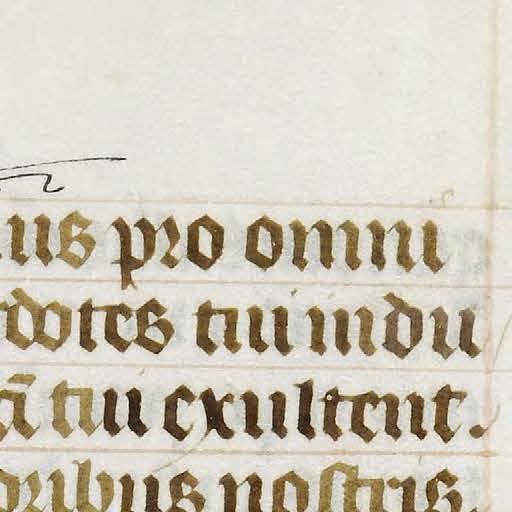 us pro omni
rdotes tui indu
ā tui exultent.
oribus nostris.